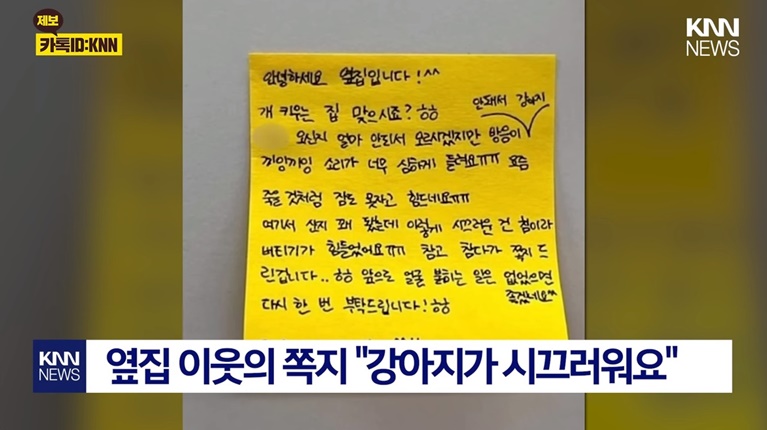 제보
카톡ID:KNN
KNN
NEWS
안녕하세요 옆집입니다!^^
개 키우는 집 맞으시죠?ㅎㅎ
안돼서 강아지
오신지 얼마 안되서 모르시겠지만 방음이
끼잉끼잉 소리가 너무 심하게 들려요ㅠㅠ 요즘
죽을 것처럼 잠도 못자고 힘드네요ㅠㅠ
여기서 산지 꽤 됐는데 이렇게 시끄러운 건 첨이라
버티기가 힘들었어요ㅠㅠ 참고 참다가 쪽지 드
린겁니다..ㅎㅎ 앞으로 얼굴 붉히는 일은 없었으면
좋겠네요^^
다시 한 번 부탁드립니다!ㅎㅎ
KNN
NEWS
옆집 이웃의 쪽지 "강아지가 시끄러워요"